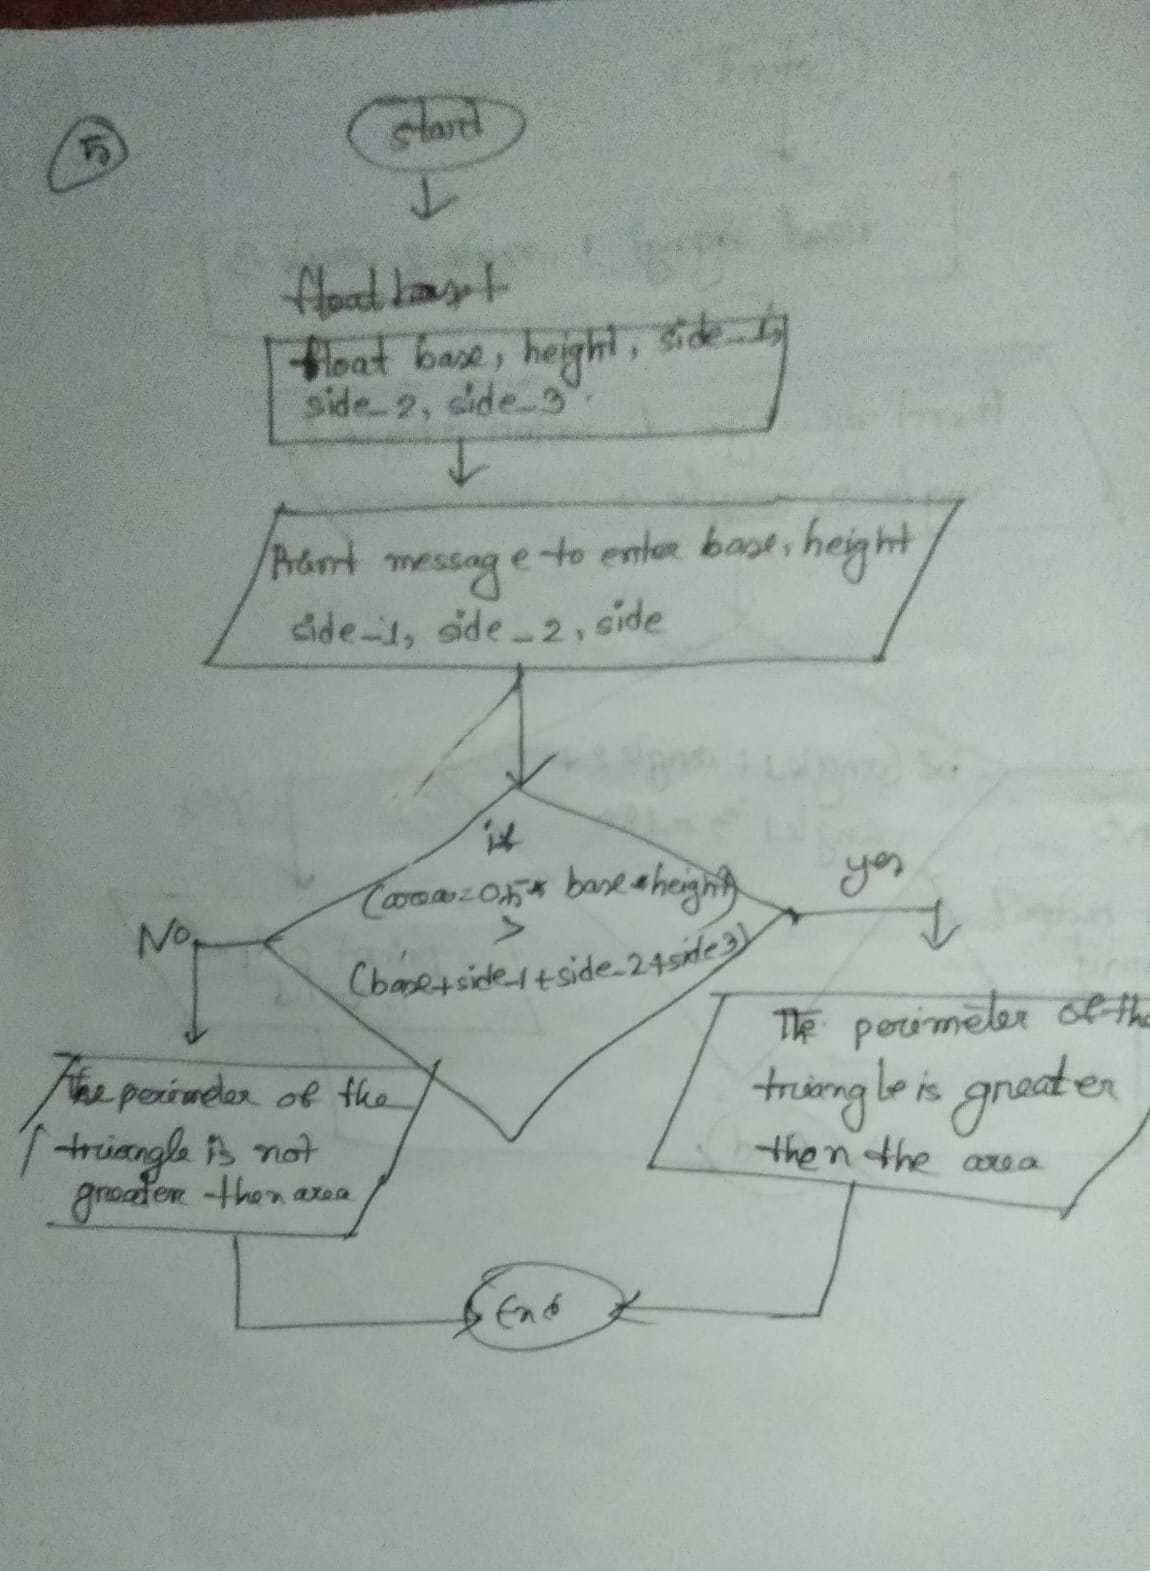 5
start
float base, height, side_1,
side_2, side_3
Print message to enter base, height
side_1, side_2, side
if
(area=0.5* base*height)
>
(base+side_1+side_2+side3)
No
yes
The perimeter of the
triangle is not
greater then area
The perimeter of the
triangle is greater
then the area
End